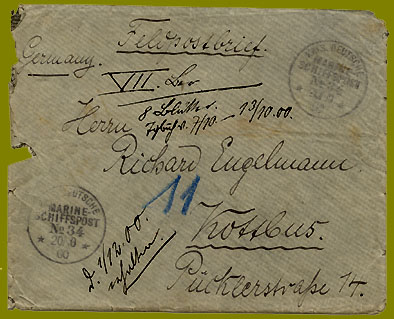 Feldpostbrief.
Germany.
VII. Ber
8 Blätter.
Tgbuch v. 7/10 – 13/10.00.
Herrn
Richard Engelmann.
11
Kottbus.
Pücklerstraße 14.
D. 1/12.00.
erhalten.
KAIS. DEUTSCHE
MARINE-
SCHIFFSPOST
DEUTSCHE
MARINE-
SCHIFFSPOST
No 34
20 9
00